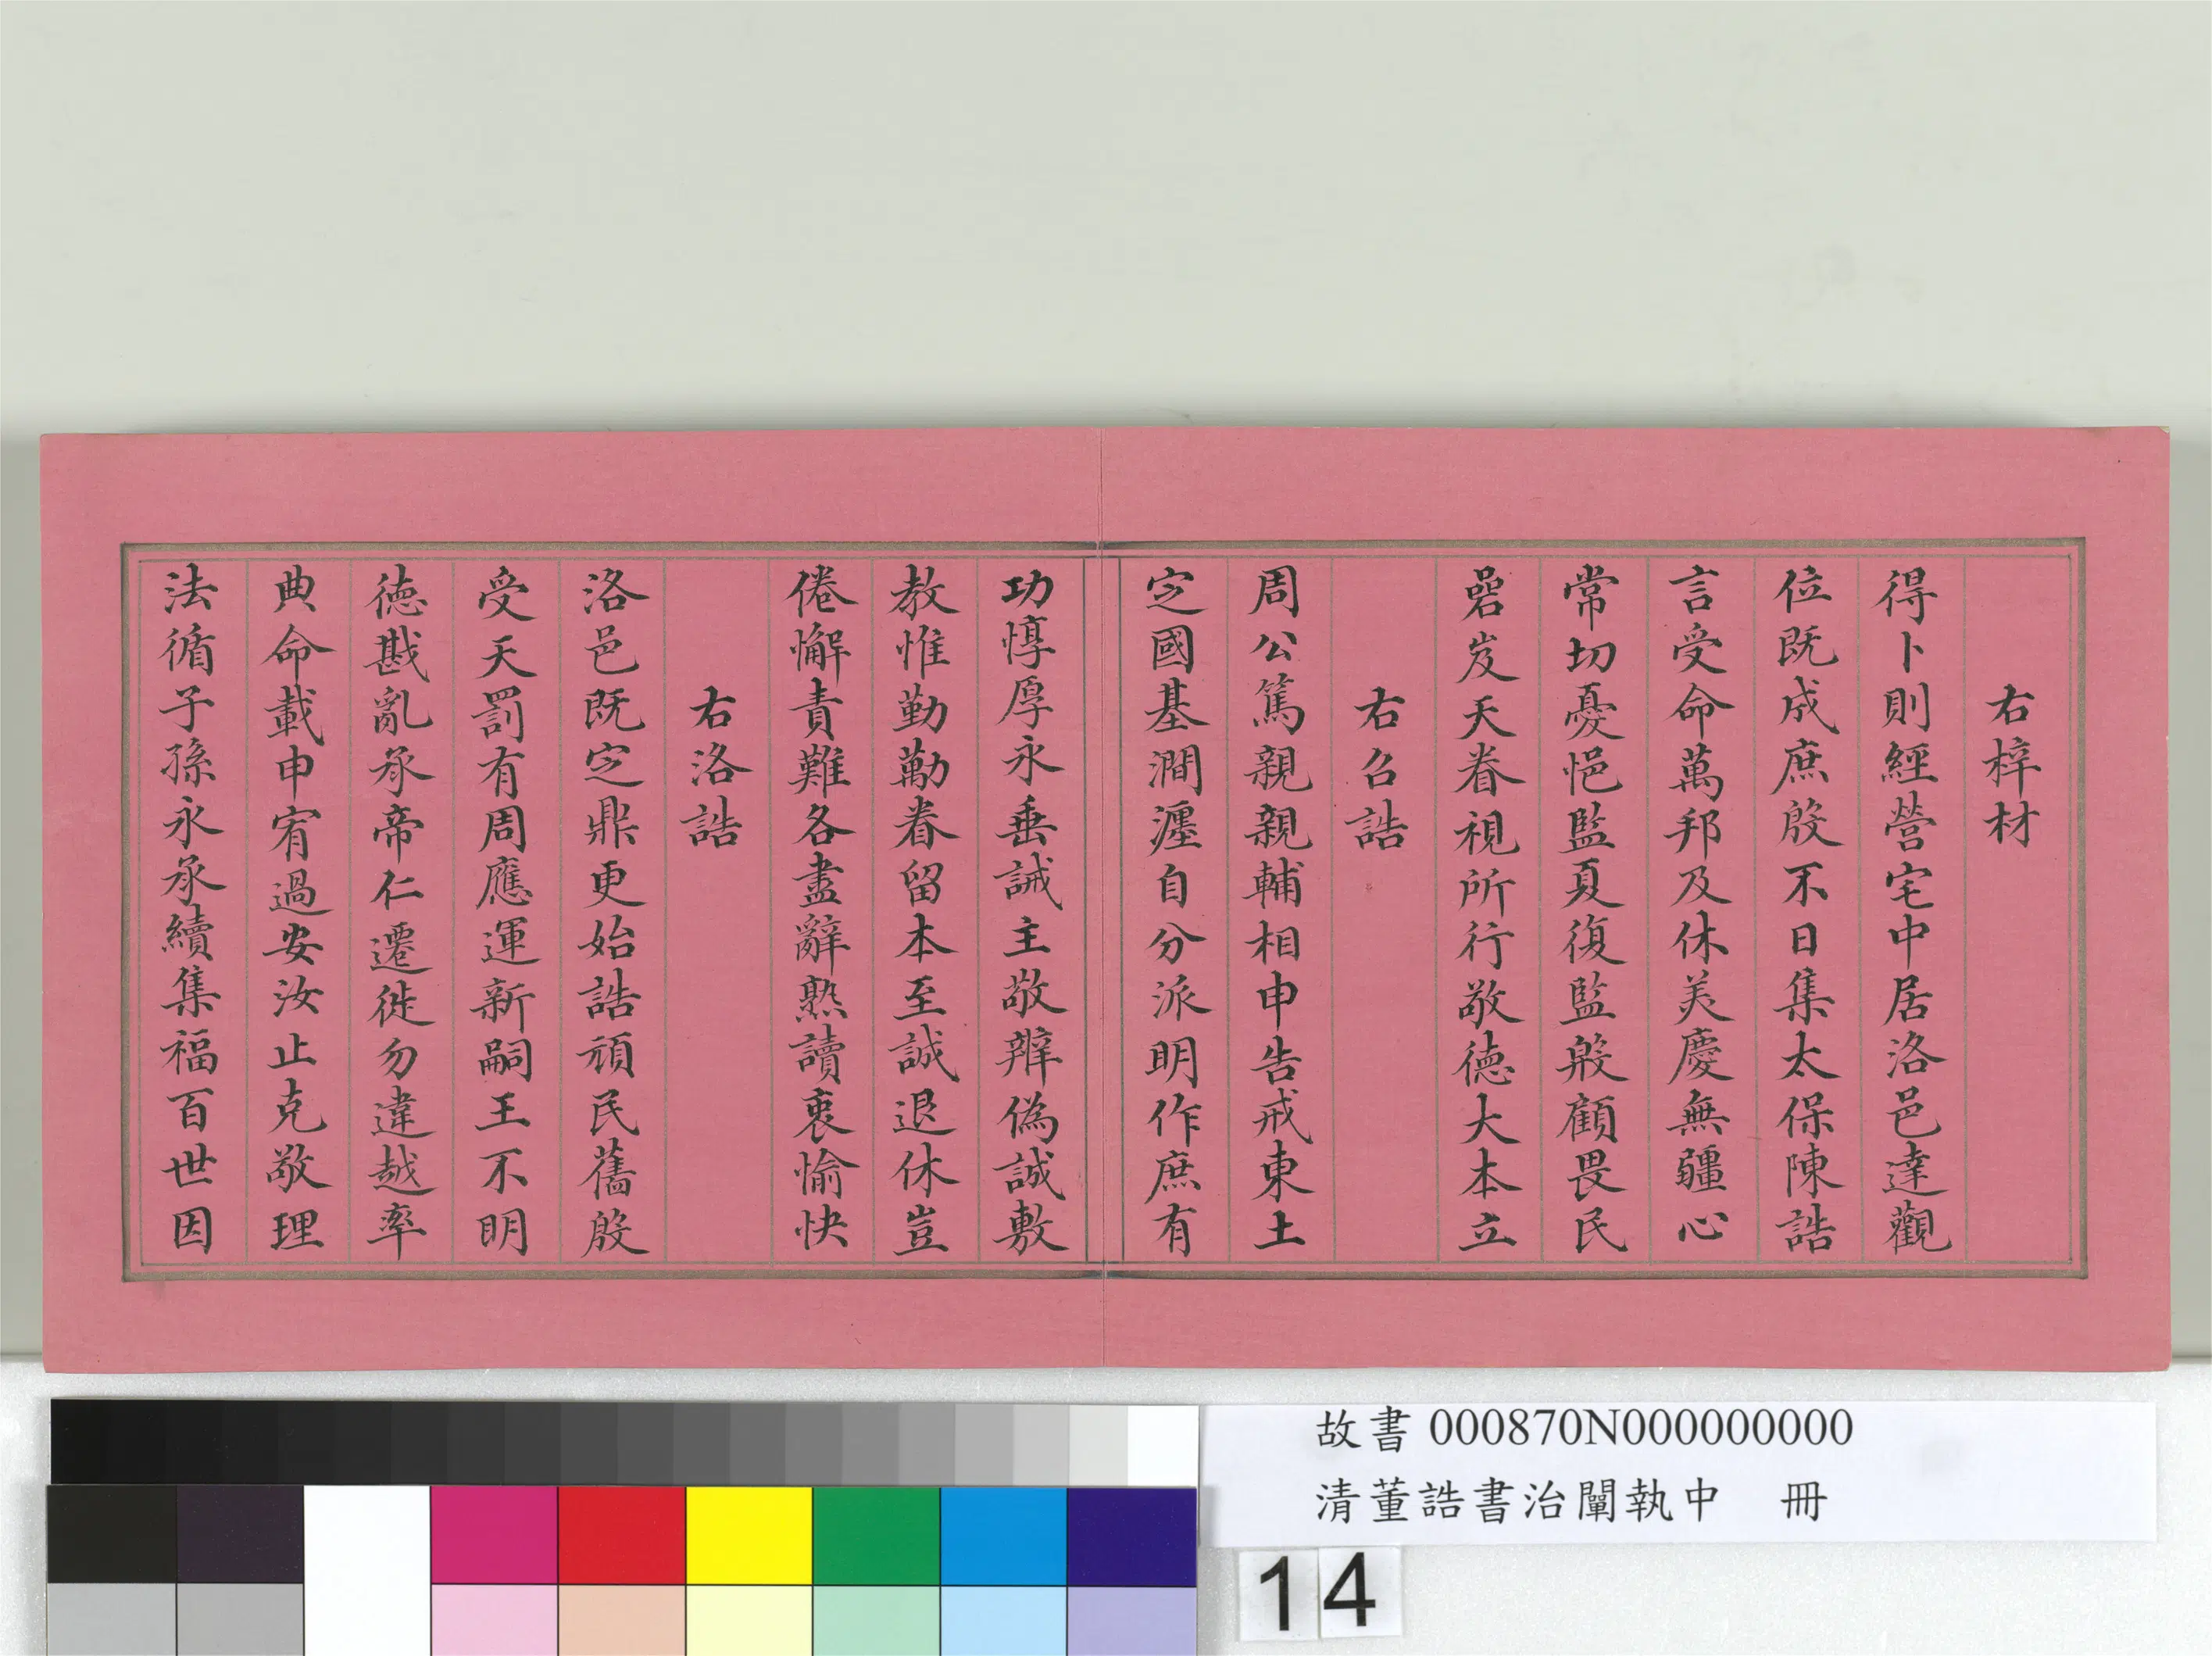 右梓材
得卜則經營宅中居洛邑達觀
位既成庶殷不日集太保陳誥
言受命萬邦及休美慶無疆心
常切憂悒監夏復監殷顧畏民
碞岌天眷視所行敬德大本立
右召誥
周公篤親親輔相申告戒東土
定國基澗瀍自分派明作庶有
功惇厚永垂誡主敬辨偽誠敷
教惟勤勱眷留本至誠退休豈
倦懈責難各盡辭熟讀衷愉快
右洛誥
洛邑既定鼎更始誥頑民舊殷
受天罰有周應運新嗣王不明
德戡亂承帝仁遷徙勿違越率
典命載申宥過安汝止克敬理
法循子孫永承續集福百世因
故書 000870N000000000
清董誥書治闡執中 冊
14